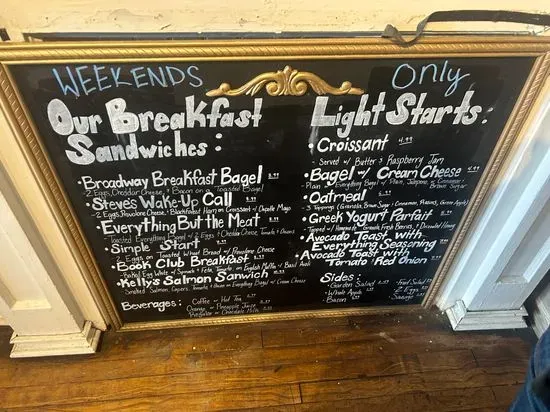 WEEKENDS
Only
Our Breakfast
Sandwiches:
• Broadway Breakfast Bagel
2 Eggs, Cheddar Cheese, & Bacon on a Toasted Bagel
• Steve's Wake-Up Call
2 Eggs, Provolone Cheese, Blackforest Ham on Croissant w/ Chipotle Mayo
• Everything But the Meat
Toasted Everything Bagel w/ 2 Eggs & Cheddar Cheese, Tomato & Onions
• Simple Start
2 Eggs on Toasted Wheat Bread w/ Provolone Cheese
• Book Club Breakfast
Egg White w/ Spinach & Feta, Tomato, on English Muffin w/
• Kelly's Salmon Sanwich
Smoked Salmon, Capers, Tomato & Onion on Everything Bagel w/ Cream Cheese
Beverages:
Coffee or Hot Tea
Orange or Pineapple Juice
Regular or Chocolate Milk
Light Starts:
• Croissant 4.99
Served w/ Butter & Raspberry Jam
• Bagel w/ Cream Cheese 4.99
Plain, Everything Bagel w/ Plain, Jalapeno or Cinnamon
Brown Sugar
• Oatmeal
3 Toppings (Granola, Brown Sugar, Cinnamon, Raisins, Green Apple)
• Greek Yogurt Parfait
Topped w/ Homemade Granola, Fresh Berries, & Drizzled Honey
• Avocado Toast with
Everything Seasoning
• Avocado Toast with
Tomato & Red Onion
Sides:
• Garden Salad
• Whole Apple
• Bacon
• Fruit Salad
• 2 Eggs
• Sausage